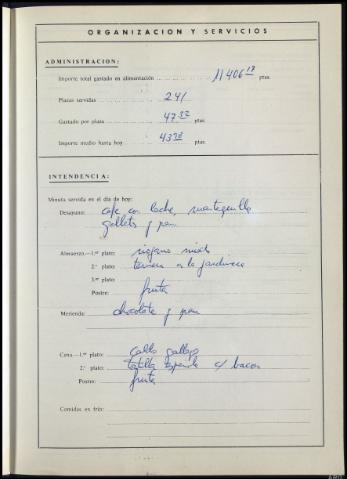 ORGANIZACION Y SERVICIOS
ADMINISTRACION:
Importe total gastado en alimentación 11406 ptas.
Plazas servidas 241
Gastado por plaza 47 ptas.
Importe medio hasta hoy 43 ptas.
INTENDENCIA:
Minuta servida en el día de hoy:
Desayuno: cafe con leche, mantequilla
galletas y pan
Almuerzo.—1.er plato:
2.º plato: ternera a la jardinera
3.er plato:
Postre: fruta
Merienda: chocolate y pan
Cena.—1.er plato: caldo gallego
2.º plato: tortilla española c/ bacon
Postre: fruta
Comidas en frío: